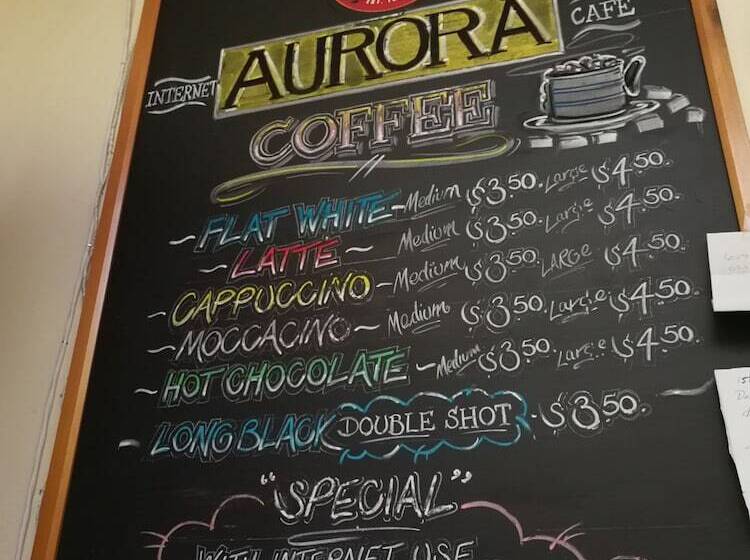 AURORA
CAFE
INTERNET
COFFEE
~ FLAT WHITE ~ Medium $3.50. Large $4.50.
~ LATTE ~ Medium $3.50. Large $4.50.
~ CAPPUCCINO ~ Medium $3.50. LARGE $4.50.
~ MOCCACINO ~ Medium $3.50. Large $4.50.
~ HOT CHOCOLATE ~ Medium $3.50. Large $4.50.
~ LONG BLACK DOUBLE SHOT - $3.50.
"SPECIAL"
WITH INTERNET USE